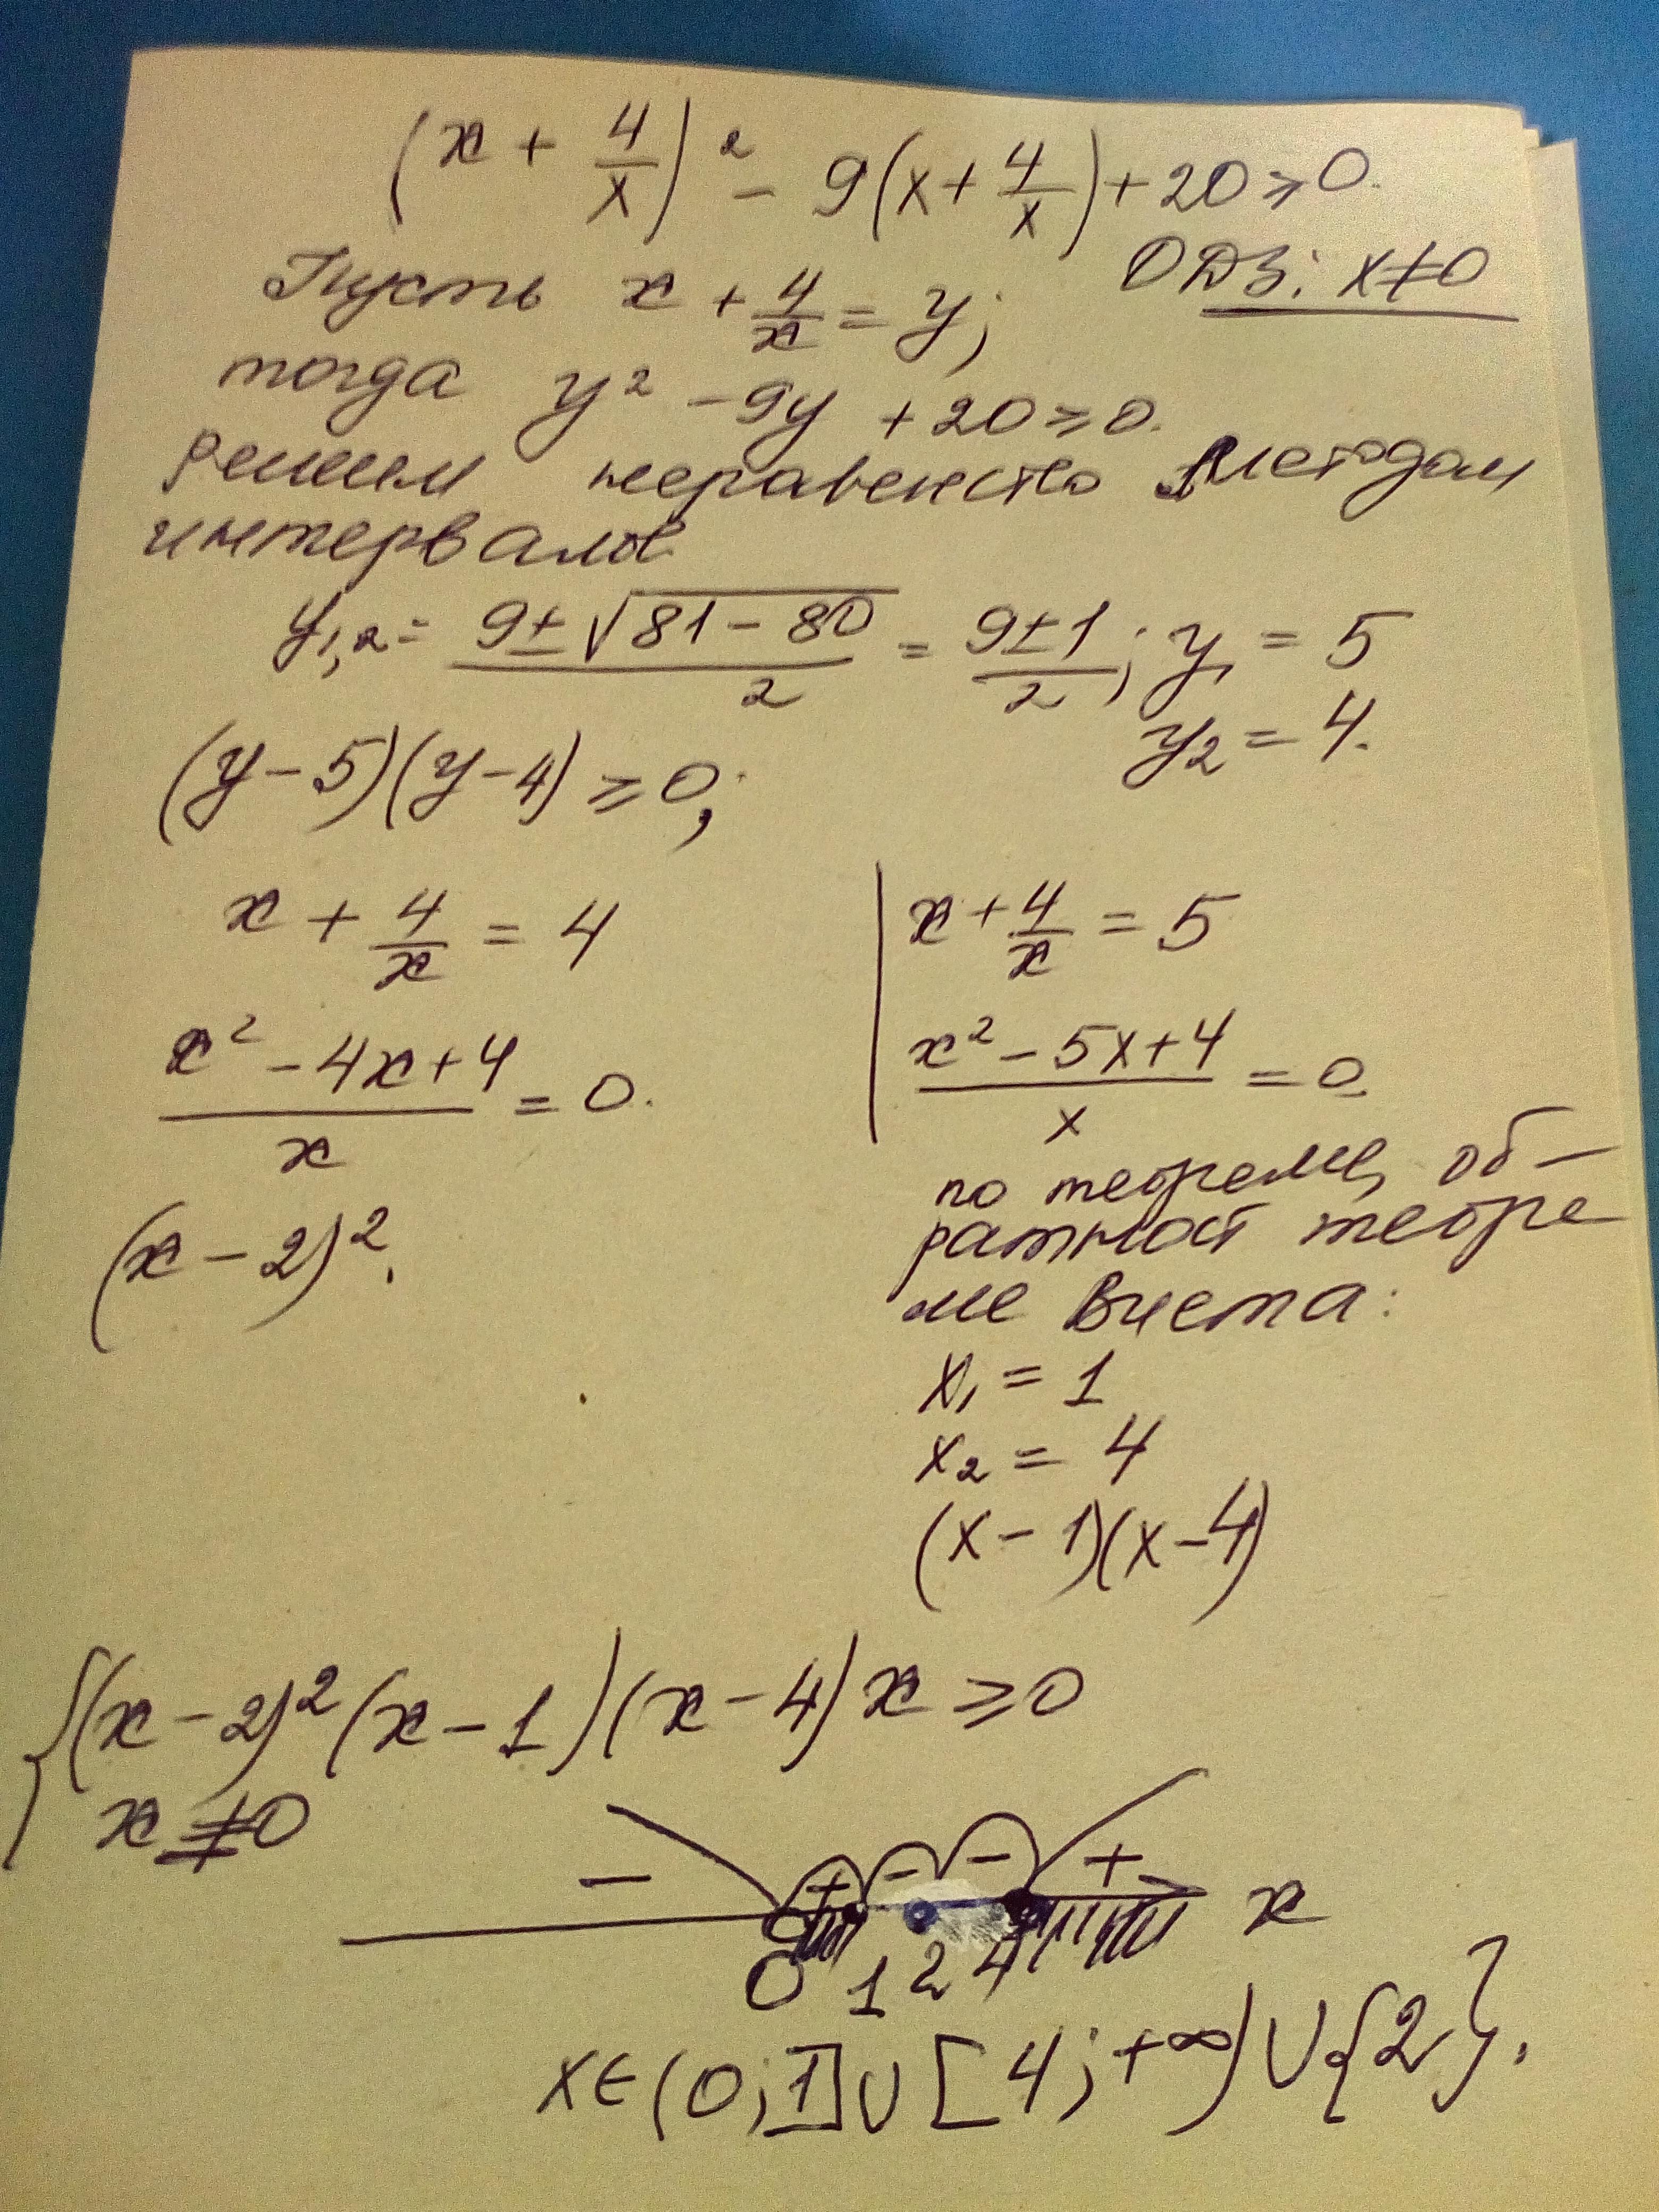 (x + 4/x)² - 9(x + 4/x) + 20 ⩾ 0.
ОДЗ: x ≠ 0
Пусть x + 4/x = y;
тогда y² - 9y + 20 ⩾ 0.
решим неравенство методом
интервалов
y₁,₂ = (9 ± √(81 - 80))/2 = (9 ± 1)/2; y₁ = 5
y₂ = 4.
(y - 5)(y - 4) ⩾ 0;
x + 4/x = 4
(x² - 4x + 4)/x = 0.
(x - 2)².
x + 4/x = 5
(x² - 5x + 4)/x = 0
по теореме, об-
ратной теоре
ме Виета:
x₁ = 1
x₂ = 4
(x - 1)(x - 4)
{(x - 2)²(x - 1)(x - 4)x ⩾ 0
x ≠ 0
- + - - + x
0 1 2 4
x ∈ (0; 1] ∪ [4; +∞) ∪ {2}.